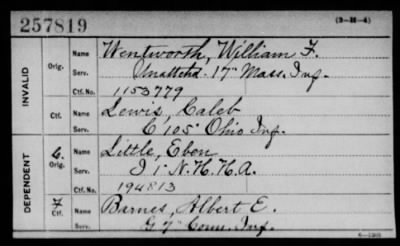 257819
(3-M-4)
INVALID
Orig.
Name Wentworth, William F.
Serv. Unattchd. 17" Mass. Inf.
Ctf. No. 1153779
Ctf.
Name Lewis, Caleb
Serv. C, 105" Ohio Inf.
DEPENDENT
6.
Orig.
Name Little, Eben
Serv. I 1" N.H.H.A.
Ctf. No. 194813
7
Ctf.
Name Barnes, Albert E.
Serv. G 7" Conn. Inf.